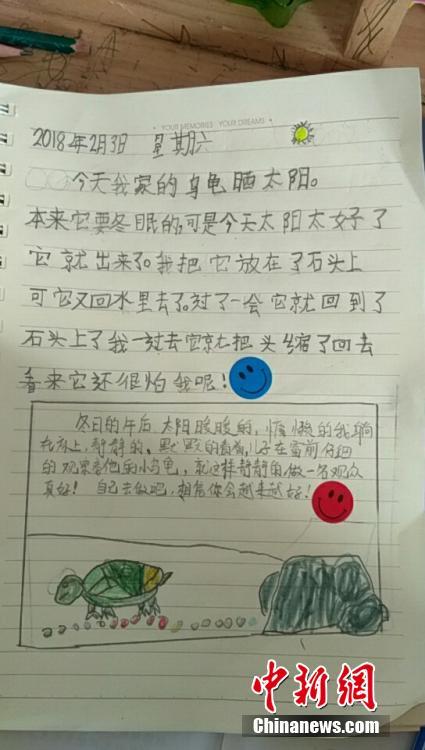 YOUR MEMORIES YOUR DREAMS
2018年2月3日 星期六
今天我家的乌龟晒太阳。
本来它要冬眠的,可是今天太阳太好了
它就出来了。我把它放在了石头上
可它又回水里去了。过了一会它就回到了
石头上了我一过去它就把头缩了回去
看来它还很怕我呢!
冬日的午后 太阳暖暖的,慵懒的我躺
在床上,静静的。默默的看着,儿子在窗前仔细
的观察着他的小乌龟,就这样静静的做一名观众
真好! 自己去做吧,相信你会越来越好!
中新网
Chinanews.com